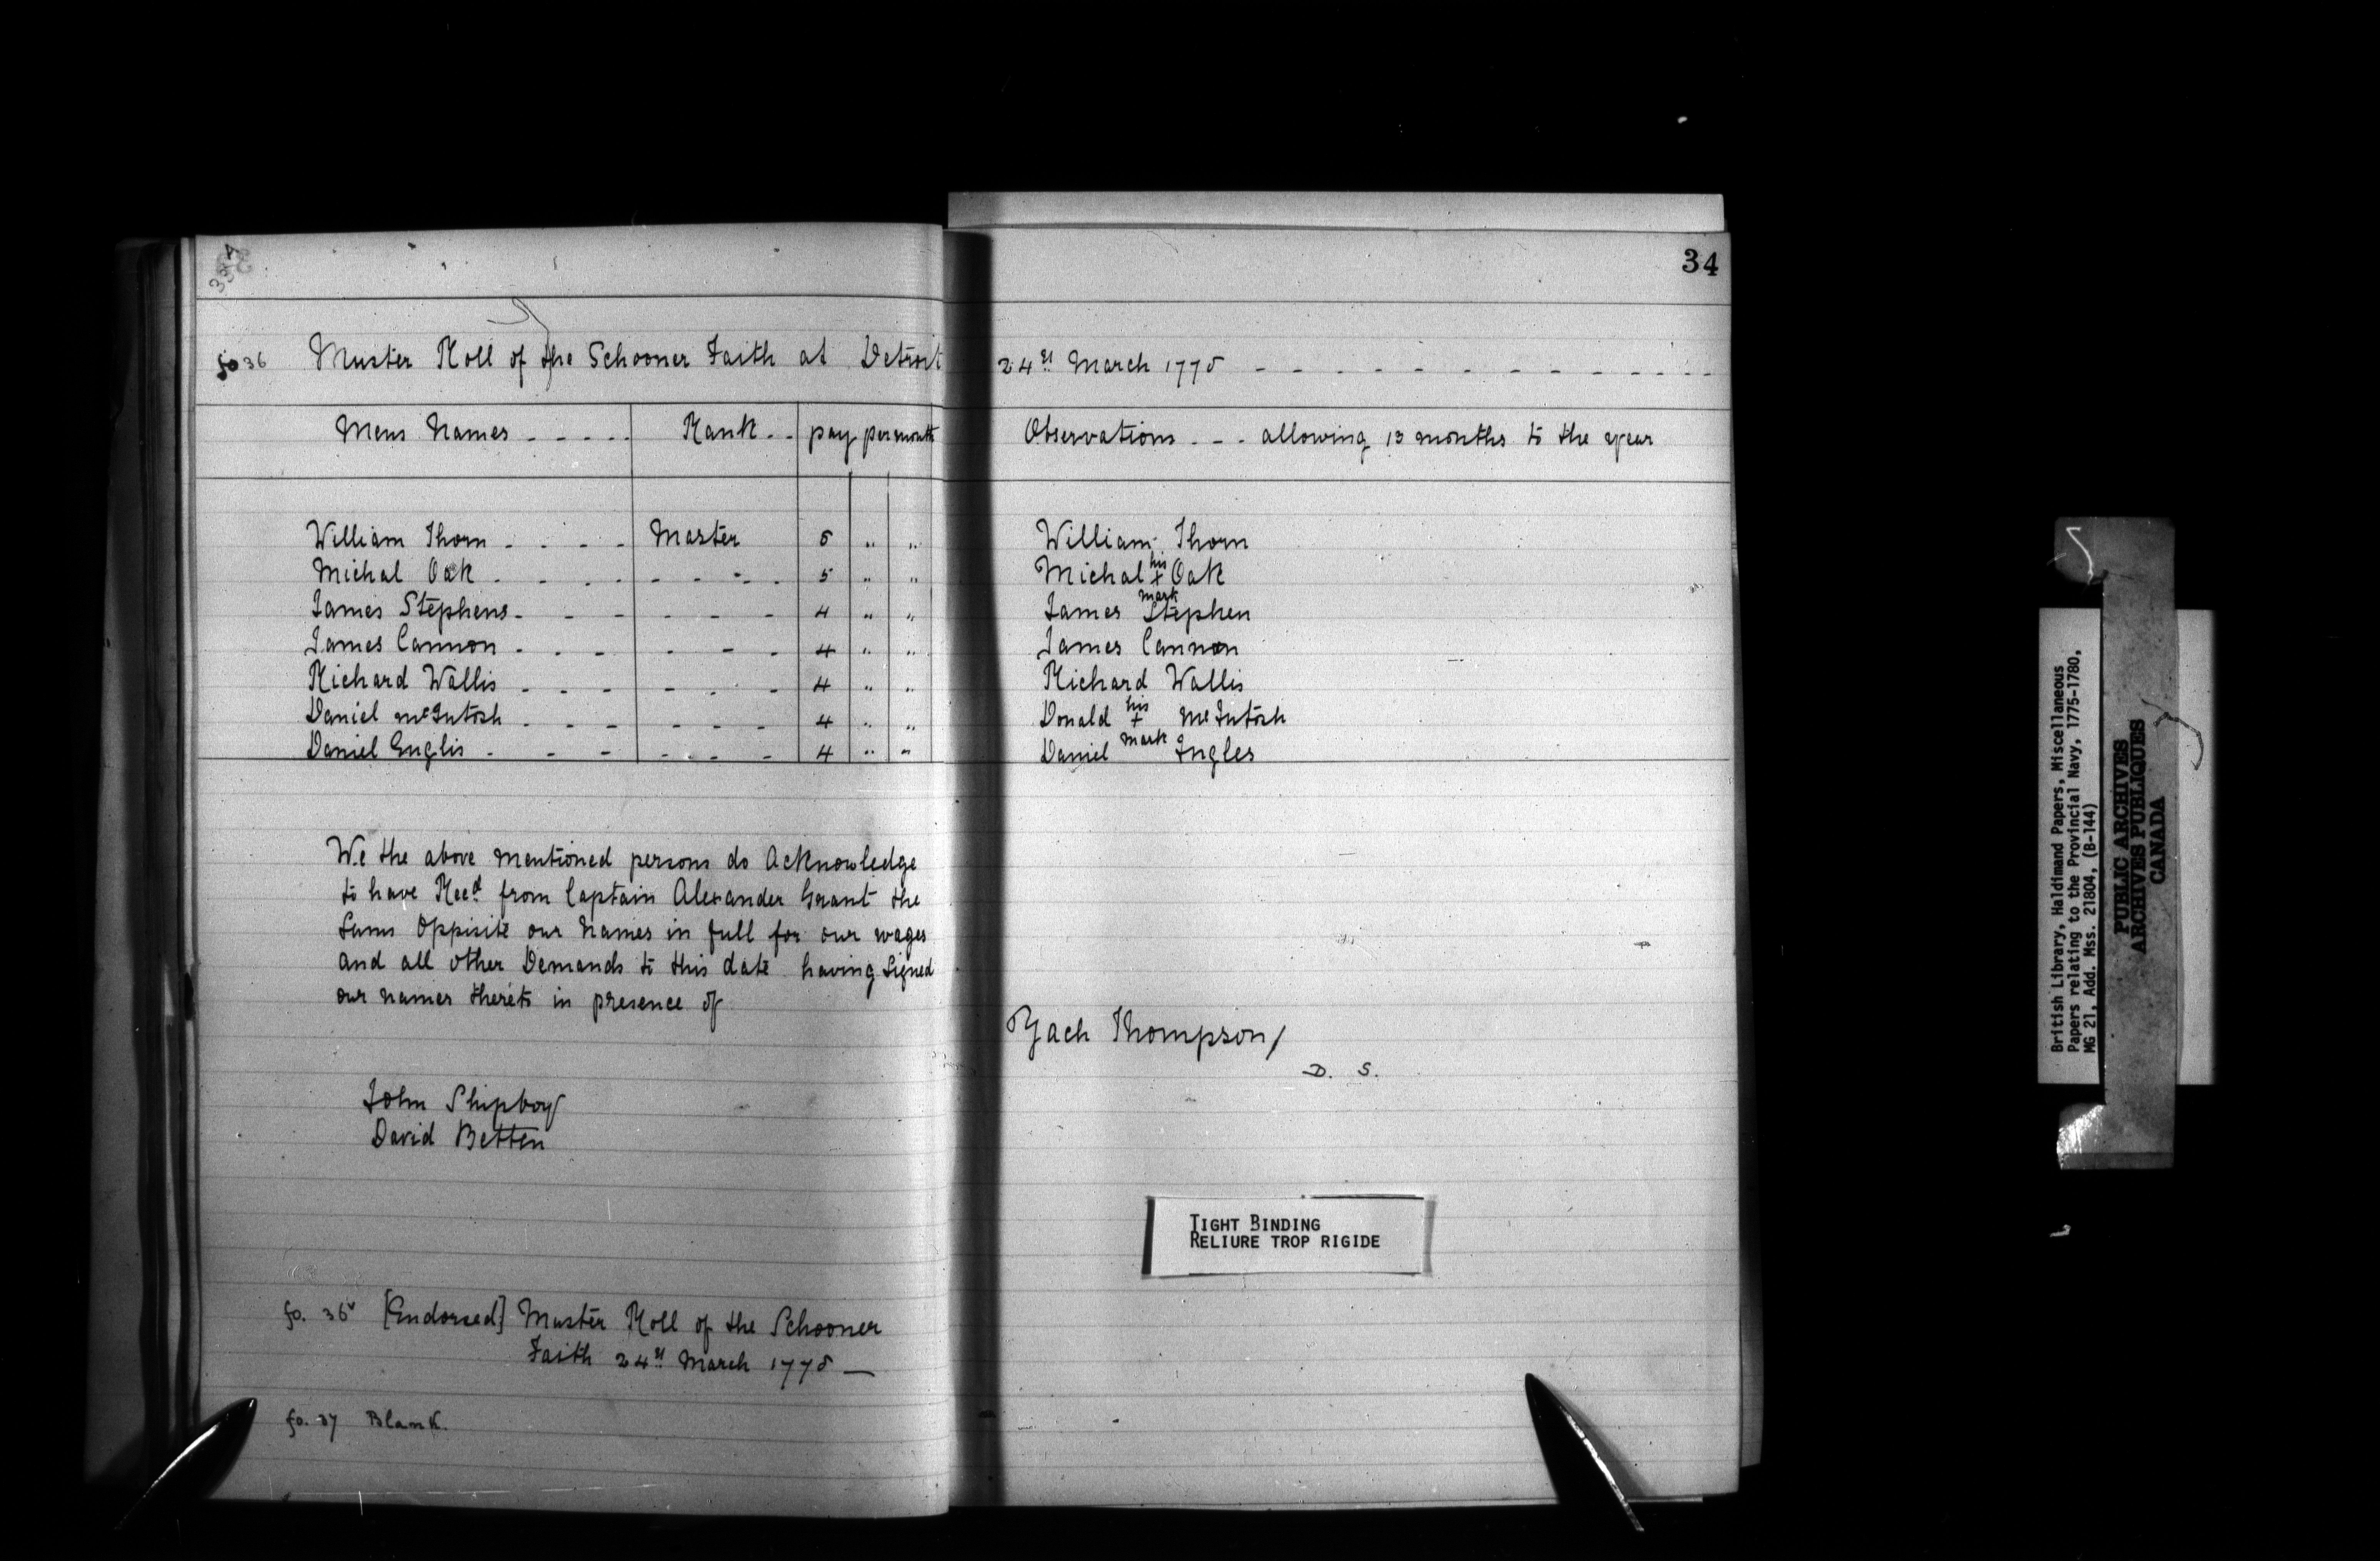 34
fo 36 Muster Roll of the Schooner Faith at Detroit 24th March 1775
Mens Names Rank pay per month Observations allowing 13 months to the year
William Thorn Master 6 " " William Thorn
Michal Oak 5 " " Michal his + mark Oak
James Stephens 4 " " James Stephen
James Cannon 4 " " James Cannon
Richard Wallis 4 " " Richard Wallis
Daniel McIntosh 4 " " Donald his + mark McIntosh
Daniel Englis 4 " " Daniel Ingles
We the above mentioned persons do Acknowledge
to have Recd from Captain Alexander Grant the
Sums Oppisite our Names in full for our wages
and all other Demands to this date having Signed
our names thereto in presence of
Zach Thompson/
D. S.
John Shipboy
David Betten
TIGHT BINDING
RELIURE TROP RIGIDE
fo. 36v [Endorsed] Muster Roll of the Schooner
Faith 24th March 1775
fo. 37 Blank.
British Library, Haldimand Papers, Miscellaneous
Papers relating to the Provincial Navy, 1775-1780,
MG 21, Add. Mss. 21804, (B-144)
PUBLIC ARCHIVES
ARCHIVES PUBLIQUES
CANADA